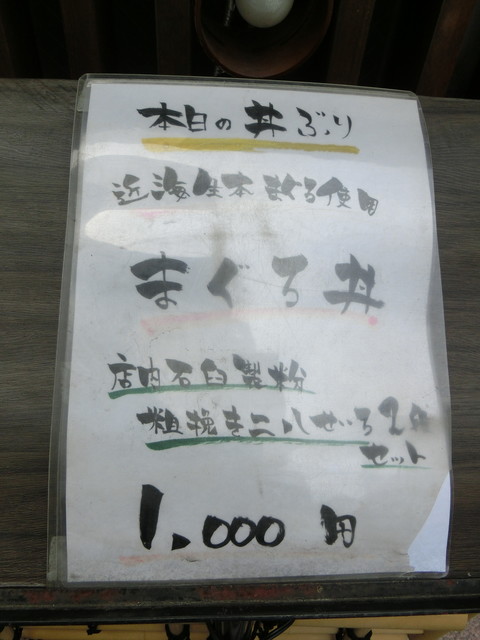 本日の丼ぶり
近海生本まぐろ使用
まぐろ丼
店内石臼製粉
粗挽き二八せいろ2枚
セット
1,000円